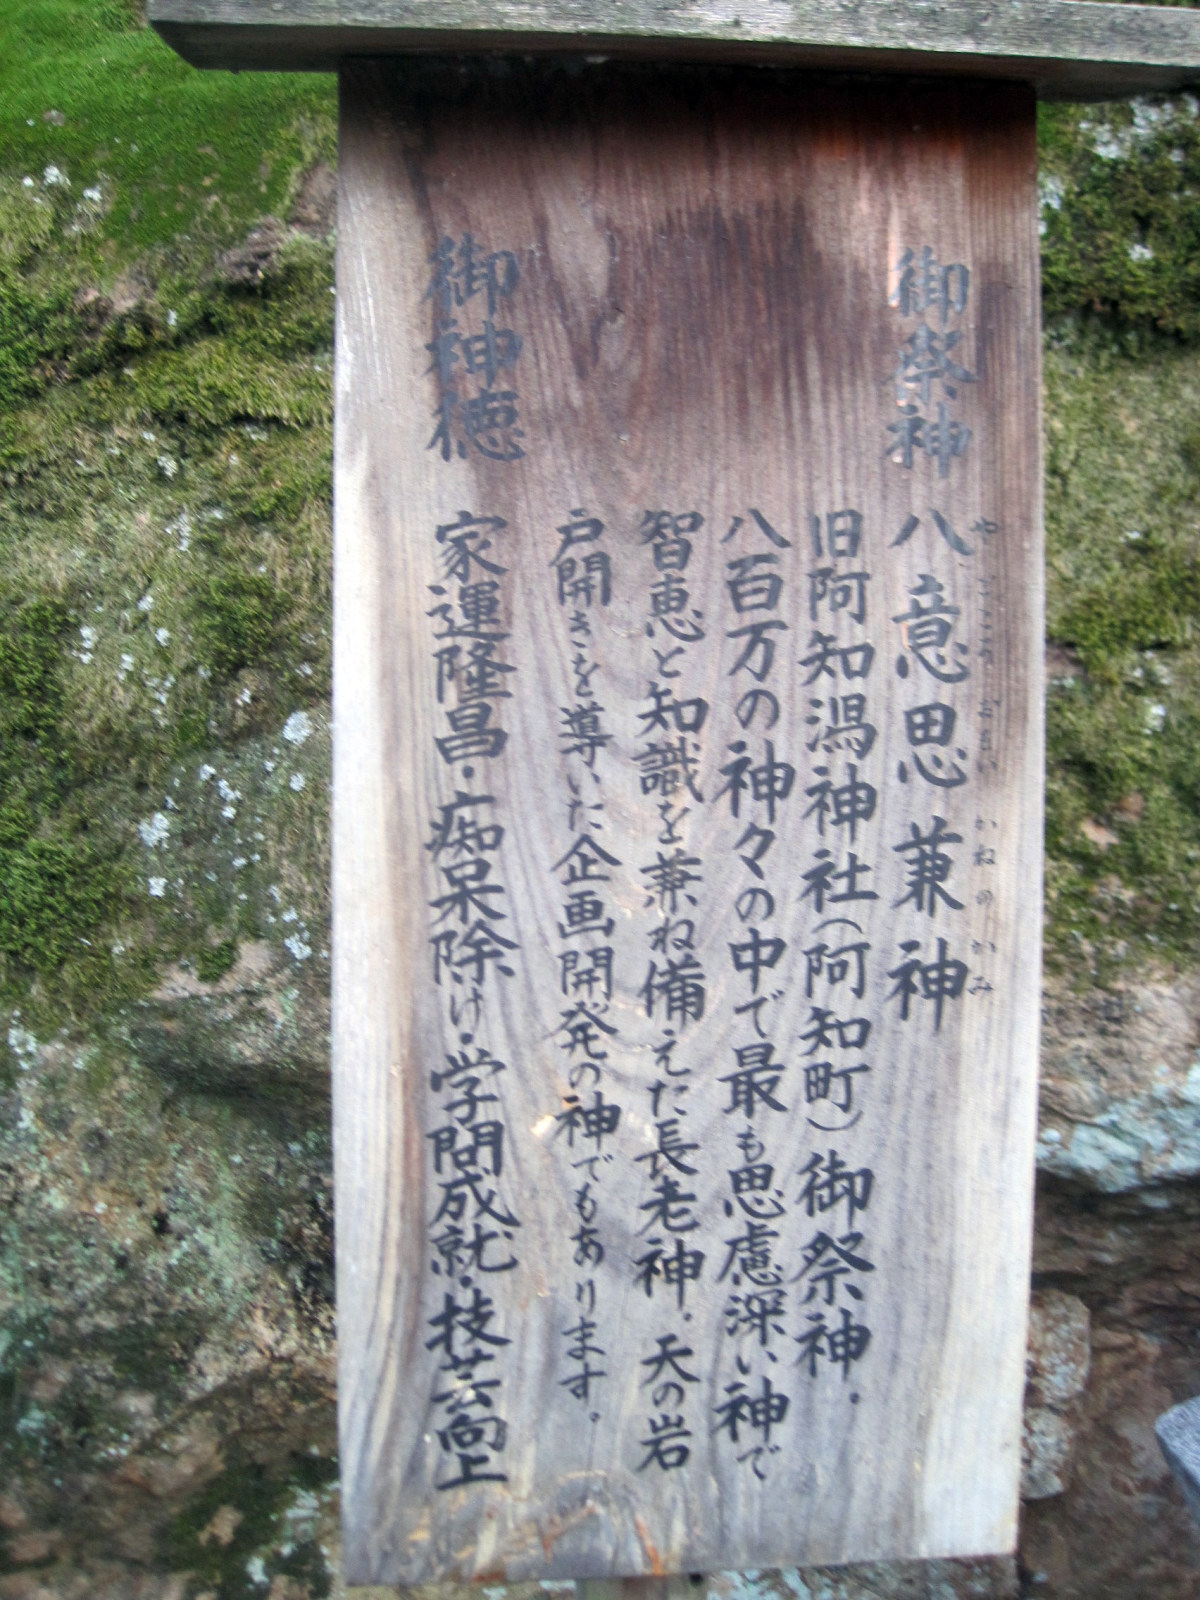 御祭神 八意思兼神
やごころ おもい かねの かみ
旧阿知潟神社(阿知町)御祭神。
八百万の神々の中で最も思慮深い神で
智恵と知識を兼ね備えた長老神。天の岩
戸開きを導いた企画開発の神でもあります。
御神徳 家運隆昌・痴呆除け・学問成就・技芸向上